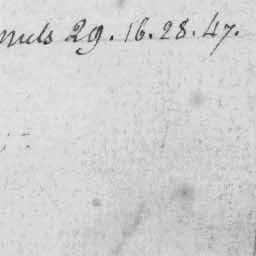 nuls 29. 16. 28. 47.